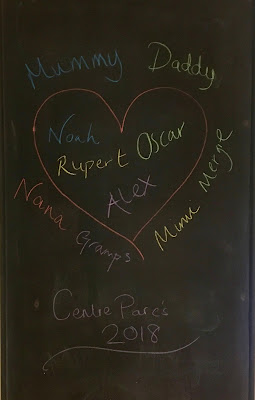 Mummy Daddy
Noah
Rupert Oscar
Alex
Nana
Gramps
Merge
Centre Parcs
2018